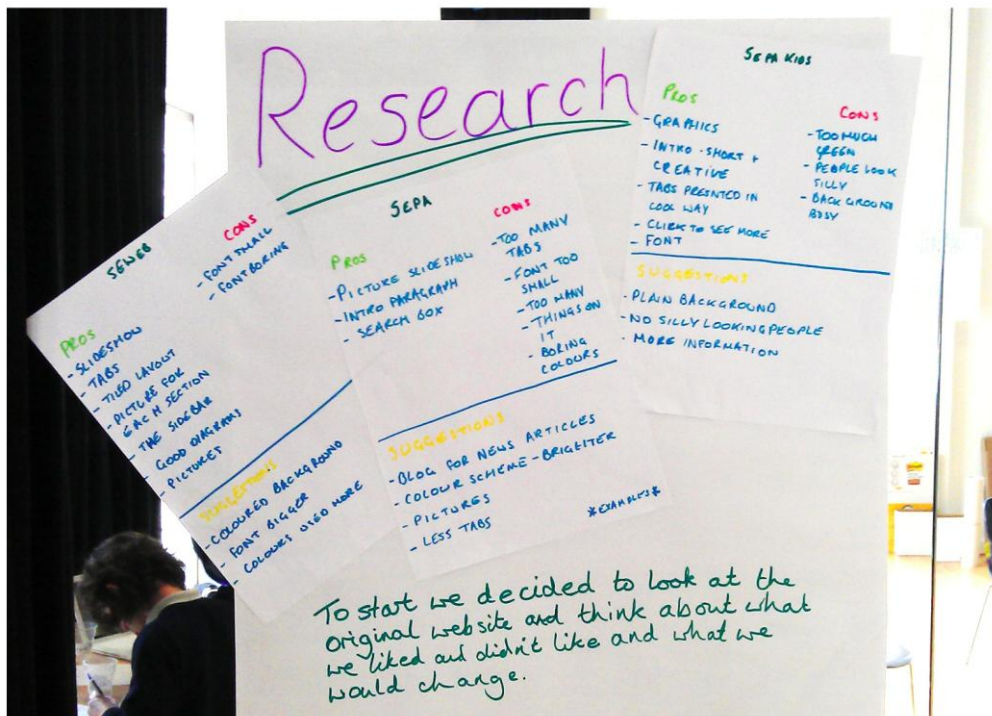 Research
SEWEB
CONS
- FONT SMALL
- FONT BORING
PROS
- SLIDESHOW
- TABS
- TILED LAYOUT
- PICTURE FOR
EACH SECTION
- THE SIDEBAR
- GOOD DIAGRAMS
- PICTURES
SUGGESTIONS
- COLOURED BACKGROUND
- FONT BIGGER
- COLOURS USED MORE
SEPA
PROS
- PICTURE SLIDESHOW
- INTRO PARAGRAPH
- SEARCH BOX
CONS
- TOO MANY
TABS
- FONT TOO
SMALL
- TOO MANY
- THINGS ON
IT
- BORING
COLOURS
SUGGESTIONS
- BLOG FOR NEWS ARTICLES
- COLOUR SCHEME - BRIGHTER
- PICTURES
- LESS TABS
*EXAMPLES*
SEPA KIDS
PROS
- GRAPHICS
- INTRO - SHORT +
CREATIVE
- TABS PRESNTED IN
COOL WAY
- CLICK TO SEE MORE
- FONT
CONS
- TOO MUCH
GREEN
- PEOPLE LOOK
SILLY
- BACKGROUND
BUSY
SUGGESTIONS
- PLAIN BACKGROUND
- NO SILLY LOOKING PEOPLE
- MORE INFORMATION
To start we decided to look at the
original website and think about what
we liked and didn't like and what we
would change.